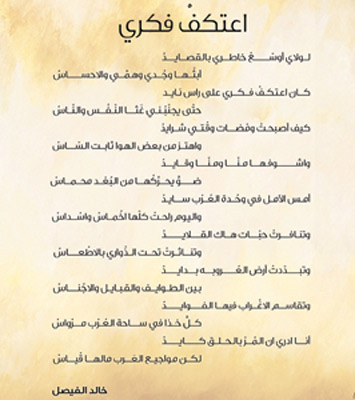 اعتكفُ فكري
لـولاي أوسّـــعْ خاطـري بـالقصايــدْ
أبثّـها وجْـدي وهـمّـي والاحسـاسْ
كـان اعتكفْ فـكـري على راس نـايد
حتّـى يجنّـبـني غـثـا النّـفْـس والنّـاسْ
كيف أصبحتْ وفضات وقْتـي شرايـدْ
واهتـز من بعض الهوا ثابت السّـاسْ
واشـوفـها منّـا ومنّـا وقـايـدْ
ضـوٍّ يحرّكـها من البُعْد محـمـاسْ
أمس الأمل في وحْدة العُرْب سـايـدْ
واليوم راحتْ كلّها اخْماسْ واسْداسْ
وتنـافـرتْ حبّـات هـاك القـلايــدْ
وتنـاثـرتْ تحت الذّواري بـالاطْعـاسْ
وتبـدّدتْ أرض العْـروبـه بـدايـدْ
بين الطـوايـف والقبـايل والاجْنـاسْ
وتقـاسـم الاغْراب فيـها الفـوايـدْ
كـلٍّ خـذا في ساحة العُرْب مرْواسْ
أنـا ادري ان المُـرّ بـالحلـق كـايـدْ
لكن مواجيع العـرب مالهـا قْيـاسْ
خالد الفيصل